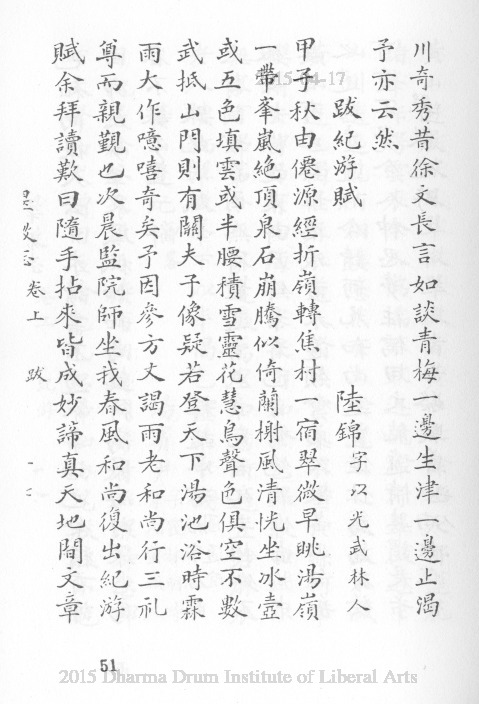 川奇秀昔徐文長言如談青梅一邊生津一邊止渴
予亦云然
跋紀游賦 陸錦字以光武林人
甲子秋由僊源經折嶺轉焦村一宿翠微早眺湯嶺
一帶峯嵐絶頂泉石崩騰似倚蘭榭風清恍坐冰壺
或五色填雲或半腰積雪靈花慧鳥聲色俱空不數
武抵山門則有關夫子像疑若登天下湯池浴時霖
雨大作噫嘻奇矣予因參方丈謁雨老和尚行三礼
尊而親覿也次晨監院師坐我春風和尚復出紀游
賦余拜讀歎曰隨手拈來皆成妙諦真天地間文章
卷上 跋
51
2015 Dharma Drum Institute of Liberal Arts